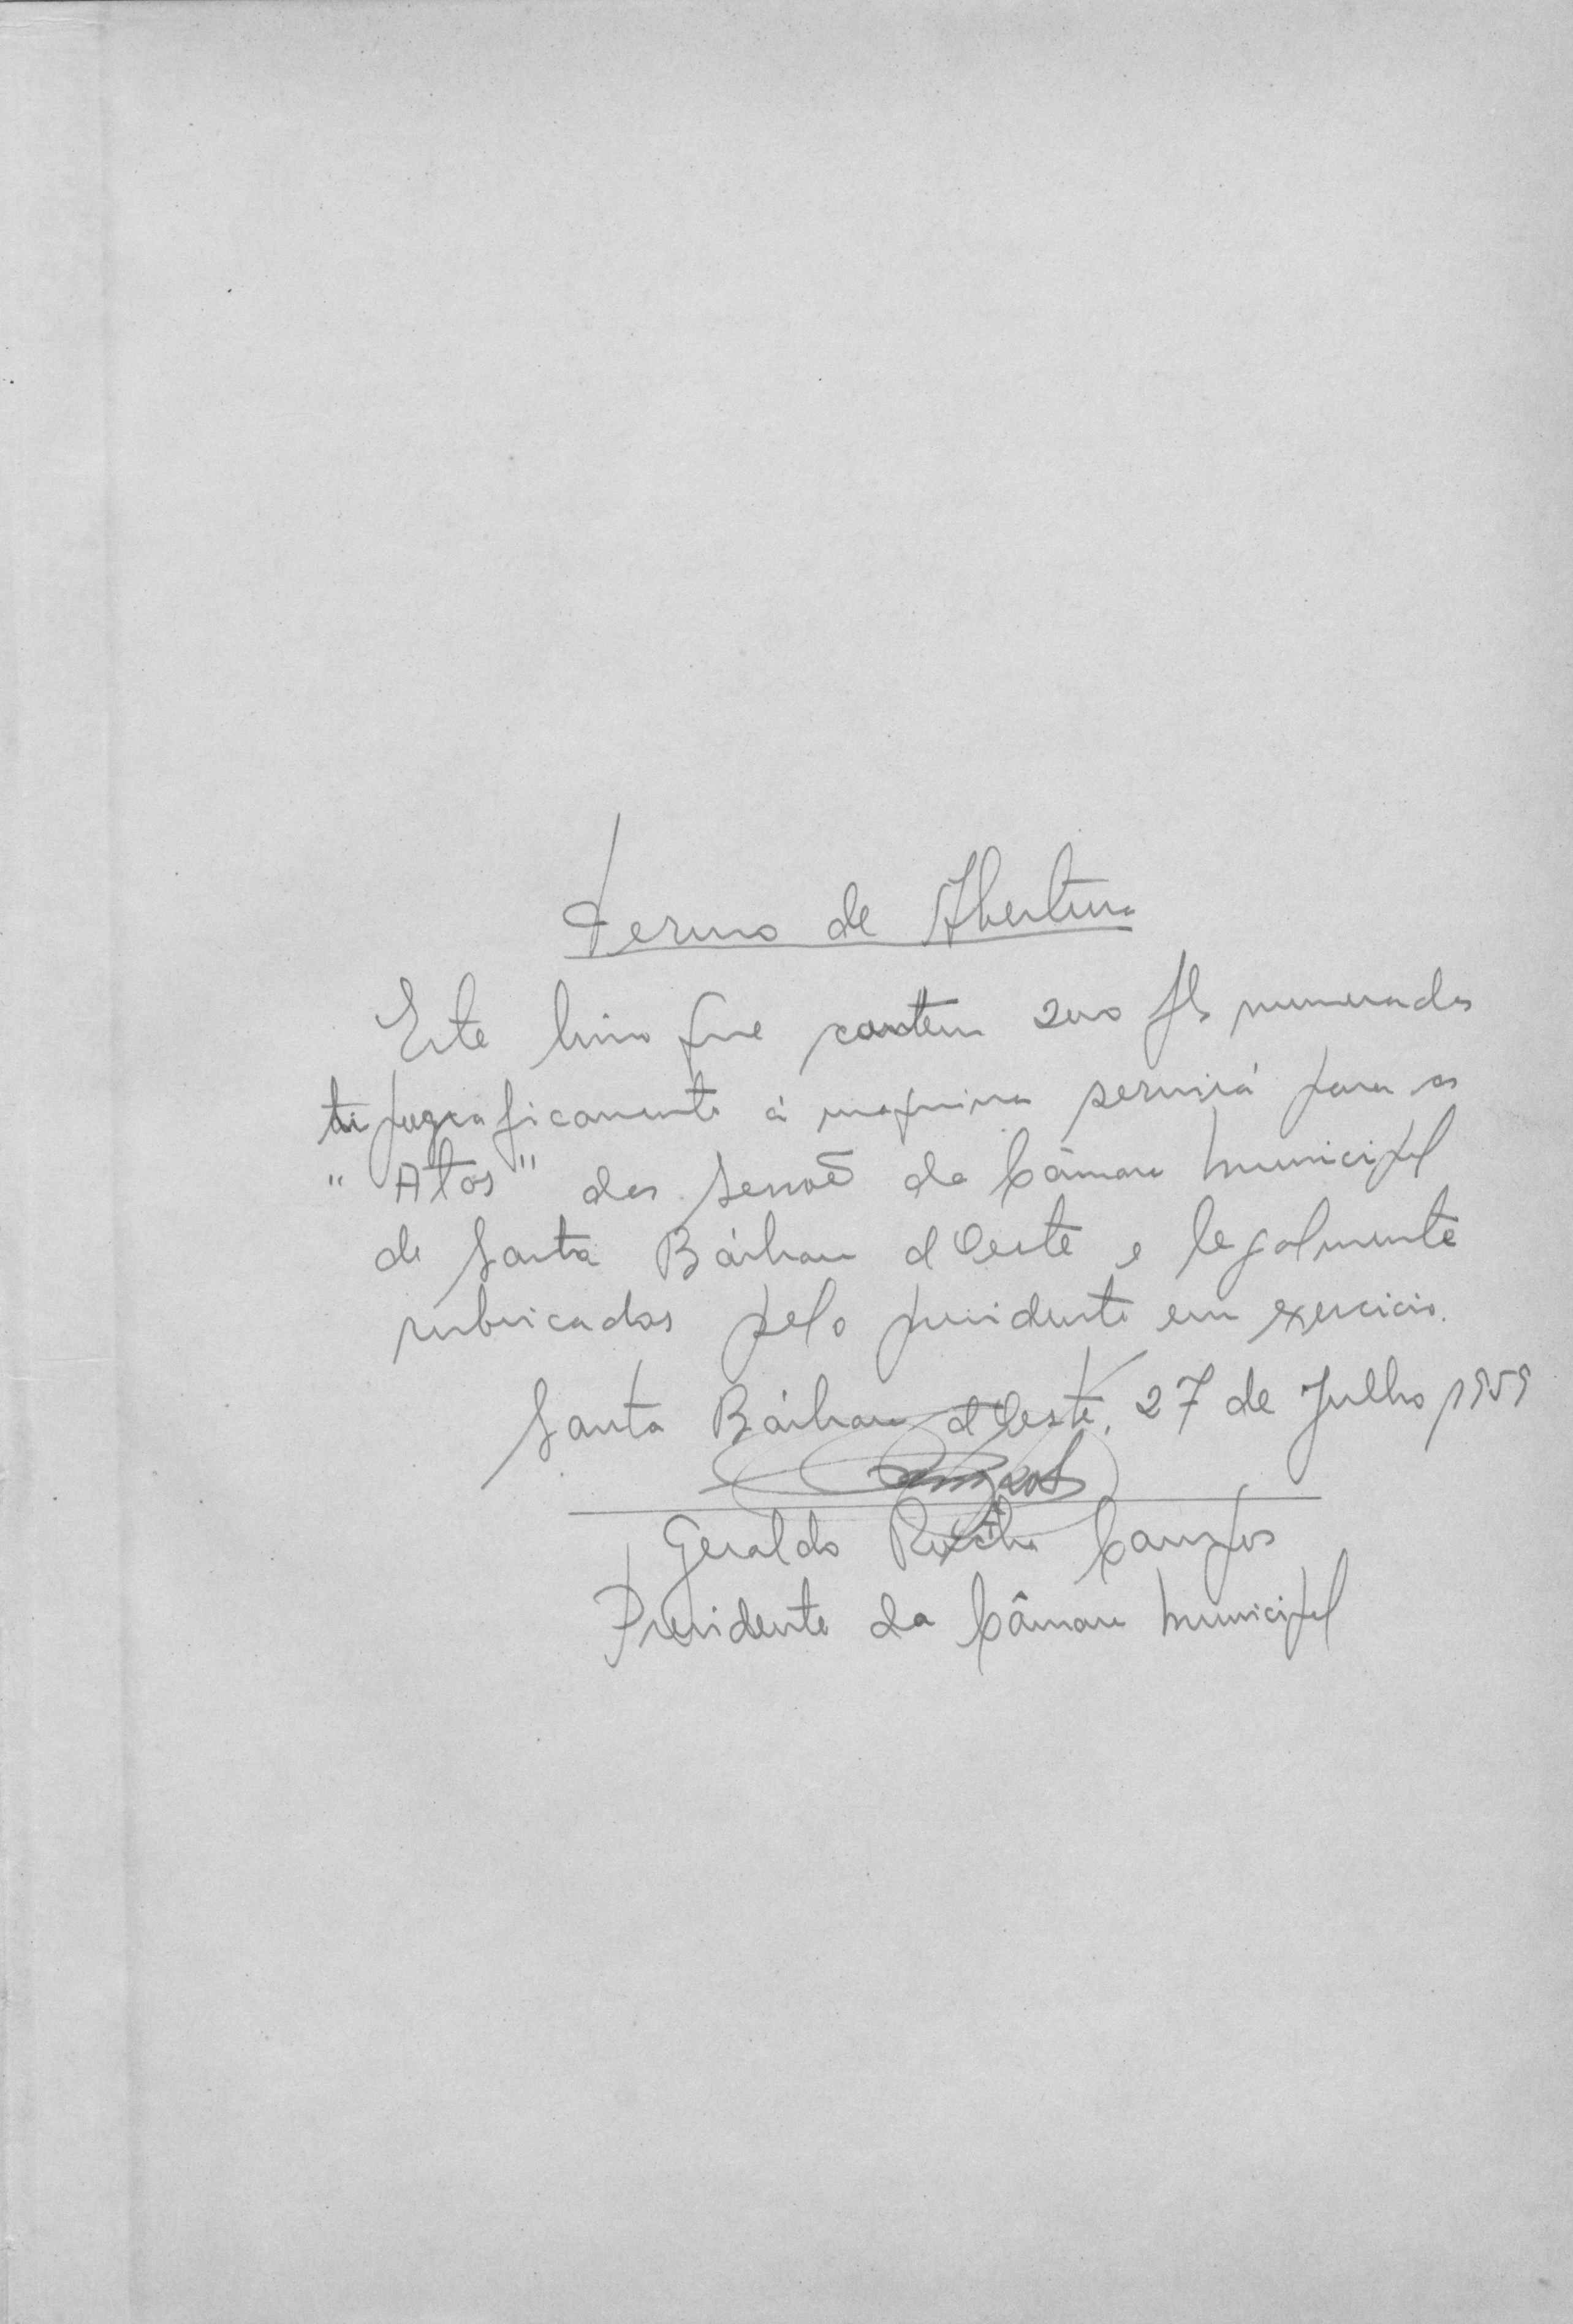 Termo de Abertura
Este livro que contem 200 fls numerados
tipograficamente à maquina servirá para as
"Atas" das sessoẽs da Câmara Municipal
de Santa Bárbara d'Oeste e legalmente
rubricadas pelo presidente em exercicio.
Santa Bárbara d'Oeste, 27 de Julho 1959
Geraldo Rocha Campos
Presidente da Câmara Municipal